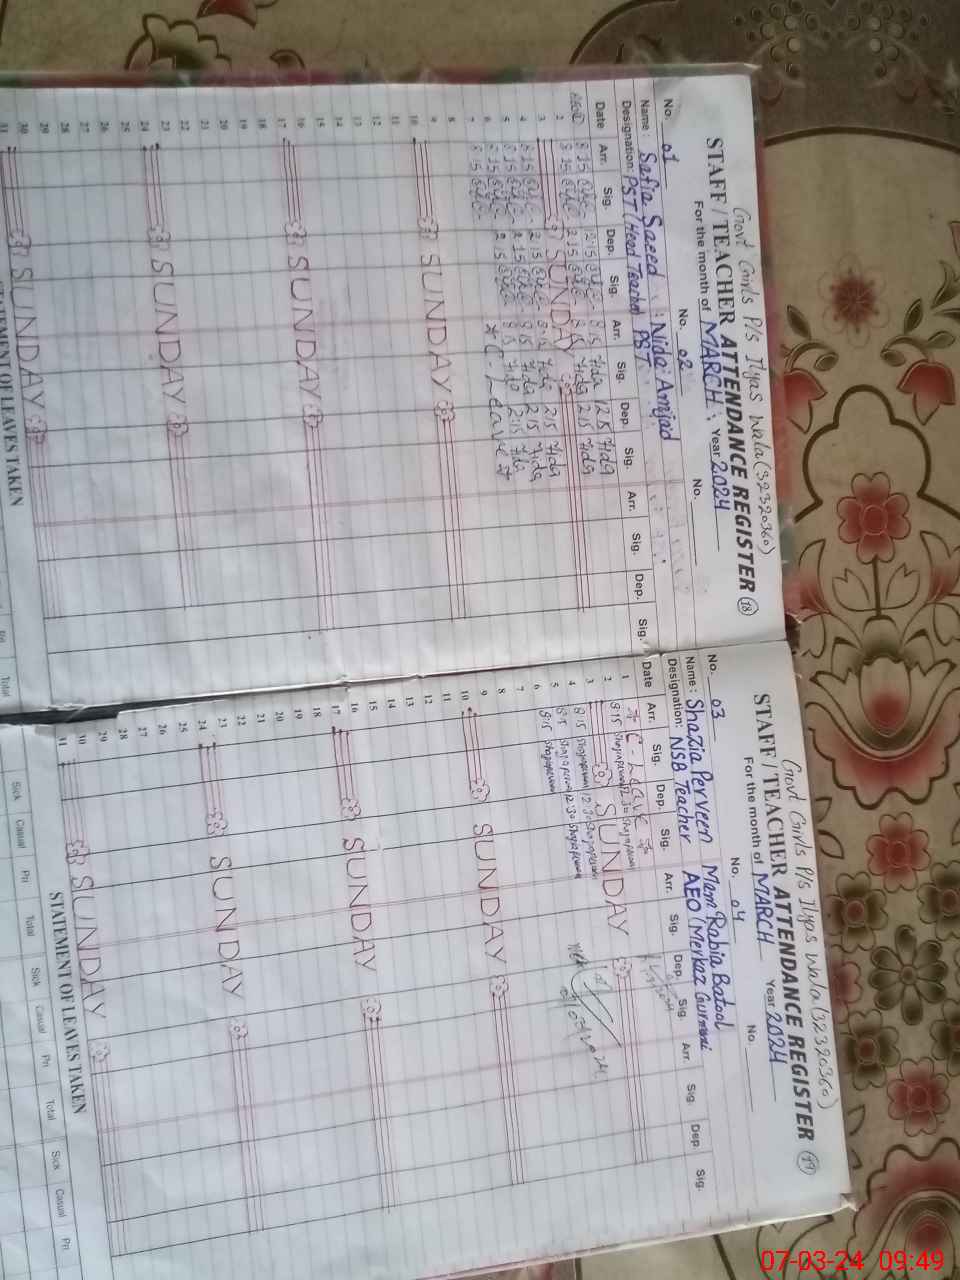 Govt Girls P/s Ilyas Wala (32320360)
STAFF / TEACHER ATTENDANCE REGISTER 18
For the month of MARCH Year 2024
No. 01 No. 02 No.
Name : Safia Saeed : Nida Amjad
Designation: PST (Head Teacher) PST
Date Arr. Sig. Dep. Sig. Arr. Sig. Dep. Sig. Arr. Sig. Dep. Sig.
8 15 12 15 8 15 Nida 12 15 Nida
2 8 15 2 15 8 15 Nida 2 15 Nida
3 SUNDAY
4 8 15 2 15 8 15 Nida 2 15 Nida
5 8 15 2 15 8 15 Nida 2 15 Nida
6 8 15 2 15 * C - Leave *
7 8 15
8
9
10 SUNDAY
11
12
13
14
15
16
17 SUNDAY
18
19
20
21
22
23
24 SUNDAY
25
26
27
28
29
30
31 SUNDAY
STATEMENT OF LEAVES TAKEN
Total
Govt Girls P/s Ilyas Wala (32320360)
STAFF / TEACHER ATTENDANCE REGISTER 19
For the month of MARCH Year 2024
No. 03 No. 04 No.
Name : Shazia Perveen Mam Rabia Batool
Designation: NSB Teacher AEO (Merkaz Gurmani
Date Arr. Sig. Dep. Sig. Arr. Sig. Dep. Sig. Arr. Sig. Dep. Sig.
1 * C - Leave *
2 8:15 12:30
3 SUNDAY
4 8:15 12:30
5 8:15 12:30
6 8:15
7
8
9
10 SUNDAY
11
12
13
14
15
16
17 SUNDAY
18
19
20
21
22
23
24 SUNDAY
25
26
27
28
29
30
31 SUNDAY
STATEMENT OF LEAVES TAKEN
Sick Casual Pri Total Sick Casual Pri Total Sick Casual Pri
07-03-24 09:49